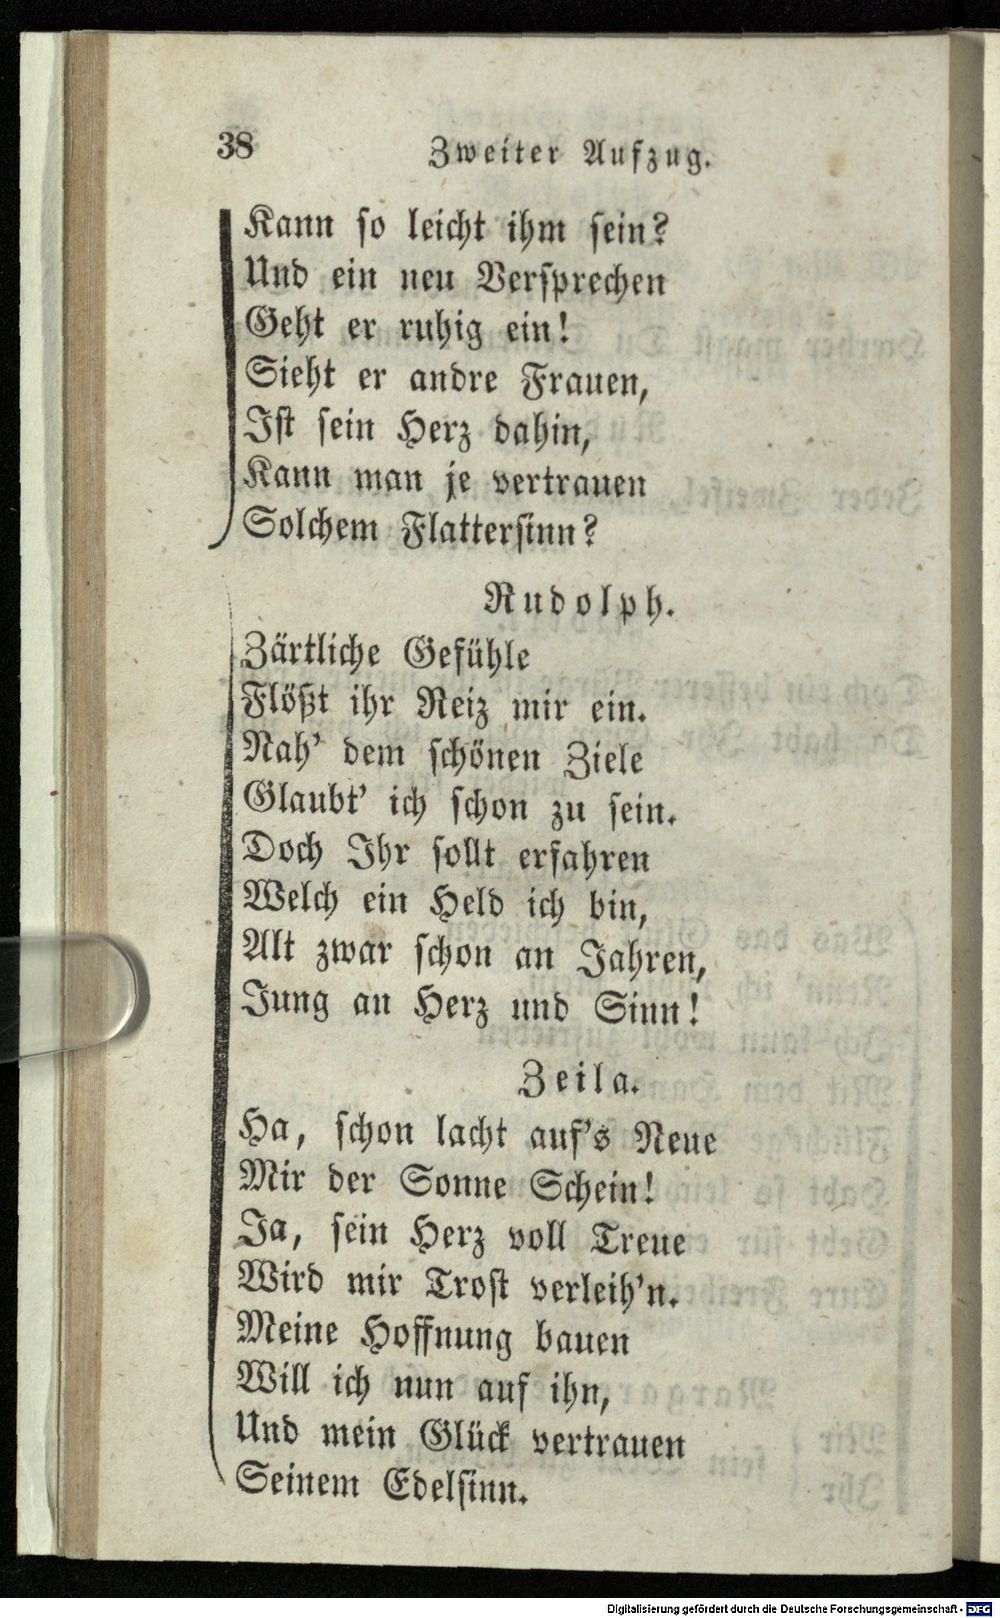 38 Zweiter Aufzug.
Kann so leicht ihm sein?
Und ein neu Versprechen
Geht er ruhig ein!
Sieht er andre Frauen,
Ist sein Herz dahin,
Kann man je vertrauen
Solchem Flattersinn?
Rudolph.
Zärtliche Gefühle
Flößt ihr Reiz mir ein.
Nah' dem schönen Ziele
Glaubt' ich schon zu sein.
Doch Ihr sollt erfahren
Welch ein Held ich bin,
Alt zwar schon an Jahren,
Jung an Herz und Sinn!
Zeila.
Ha, schon lacht auf's Neue
Mir der Sonne Schein!
Ja, sein Herz voll Treue
Wird mir Trost verleih'n.
Meine Hoffnung bauen
Will ich nun auf ihn,
Und mein Glück vertrauen
Seinem Edelsinn.
Digitalisierung gefördert durch die Deutsche Forschungsgemeinschaft - DFG